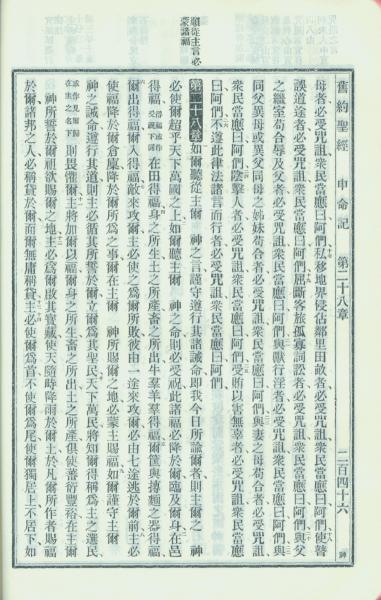 順從主言必
蒙諸福
舊約聖經 申命記 第二十八章 二百四十六 神
母者必受咒詛衆民當應曰阿們私移地界侵佔鄰里田畝者必受咒詛衆民當應曰阿們使瞽
誤道途者必受咒詛衆民當應曰阿們屈斷客旅孤寡詞訟者必受咒詛衆民當應曰阿們與父
之繼室苟合辱及父者必受咒詛衆民當應曰阿們與獸行淫者必受咒詛衆民當應曰阿們與
同父異母或異父同母之姊妹苟合者必受咒詛衆民當應曰阿們與妻之母苟合者必受咒詛
衆民當應曰阿們陰擊人者必受咒詛衆民當應曰阿們受賄以害無辜者必受咒詛衆民當應
曰阿們不遵此律法諸言而行者必受咒詛衆民當應曰阿們
第二十八章 如爾聽從主 神之言謹守遵行其諸誡命即我今日所諭爾者則主爾之 神
必使爾超乎天下萬國之上如爾聽主 神之命則必受祝此諸福必降於爾臨及爾身在邑
得福得福或作受祝下同在田得福身之所生土之所產畜之所出牛羣羊羣得福爾筐與摶麵之器得福
爾出得福爾入得福敵來攻爾主必使之爲爾所敗彼由一途來攻爾必由七途逃於爾前主必
使福降於爾倉廩降於爾所爲之事爾在主爾 神所賜爾之地必蒙主賜福如爾謹守主爾
神之誡命遵行其道則主必循其所誓於爾立爾爲其聖民天下萬民將知爾得稱爲主之選民
或作見爾歸在主之名下則畏懼爾主將加爾以福爾身之所生畜之所出土之所產俱蕃衍豐裕在主爾
神所誓於爾祖欲賜爾之地主必爲爾啟其寶藏使天隨時降雨於爾土於凡爾所作者賜福
於爾諸邦之人必稱貸於爾而爾無庸稱貸主必使爾爲首不使爾爲尾使爾獨居上不居下如